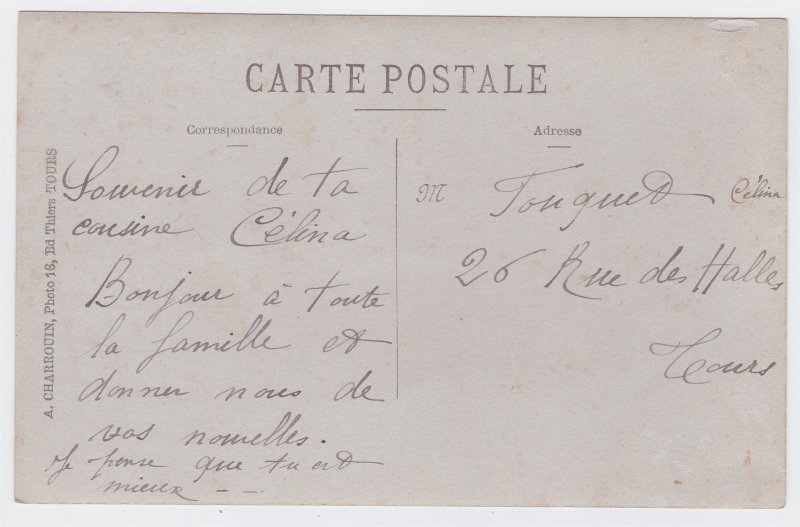 CARTE POSTALE
Correspondance
Souvenir de ta
cousine Célina
Bonjour à toute
la famille et
donner nous de
vos nouvelles.
Je pense que tu est
mieux - -
Adresse
M Touquet Célina
26 Rue des Halles
Tours
A. CHARROUIN, Photo 16, Bd Thiers TOURS